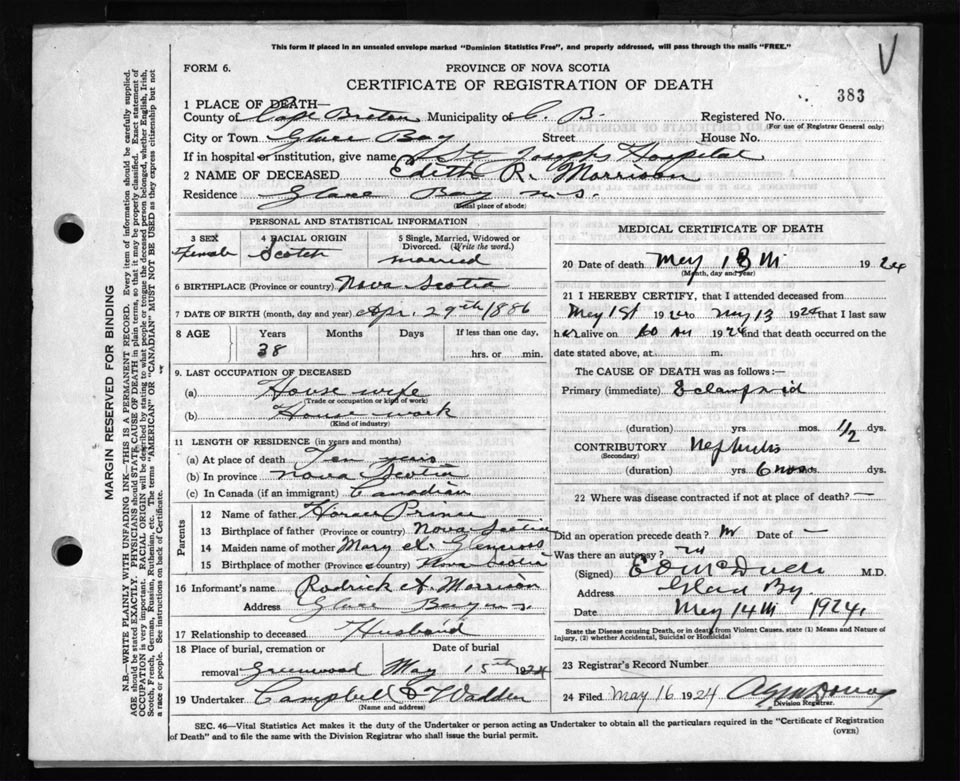 This form if placed in an unsealed envelope marked "Dominion Statistics Free", and properly addressed, will pass through the mails "FREE."
V
FORM 6.
PROVINCE OF NOVA SCOTIA
CERTIFICATE OF REGISTRATION OF DEATH
383
1 PLACE OF DEATH—
County of Cape Breton Municipality of C. B. Registered No.
(For use of Registrar General only)
City or Town Glace Bay Street House No.
If in hospital or institution, give name St Josephs Hospital
2 NAME OF DECEASED Edith R. Morrison
Residence Glace Bay N. S.
(Usual place of abode)
PERSONAL AND STATISTICAL INFORMATION
3 SEX Female
4 RACIAL ORIGIN Scotch
5 Single, Married, Widowed or Divorced. (Write the word.) married
6 BIRTHPLACE (Province or country) Nova Scotia
7 DATE OF BIRTH (month, day and year) Apr. 29th 1886
8 AGE Years Months Days If less than one day,
38 hrs. or min.
9. LAST OCCUPATION OF DECEASED
(a) House wife
(Trade or occupation or kind of work)
(b) House work
(Kind of industry)
11 LENGTH OF RESIDENCE (in years and months)
(a) At place of death Ten years
(b) In province Nova Scotia
(c) In Canada (if an immigrant) Canadian
Parents
12 Name of father Horace Prince
13 Birthplace of father (Province or country) Nova Scotia
14 Maiden name of mother Mary
15 Birthplace of mother (Province or country) Nova Scotia
16 Informant's name Rodrick A. Morrison
Address Glace Bay N. S.
17 Relationship to deceased Husband
18 Place of burial, cremation or removal Date of burial
Greenwood May 15th 1924
19 Undertaker Campbell & Wadden
(Name and address)
MEDICAL CERTIFICATE OF DEATH
20 Date of death May 13 th 1924
(Month, day and year)
21 I HEREBY CERTIFY, that I attended deceased from
May 1st 192 to May 13 1924 that I last saw
her alive on 1924 and that death occurred on the
date stated above, at m.
The CAUSE OF DEATH was as follows:—
Primary (immediate)
(duration) yrs. mos. 1/2 dys.
CONTRIBUTORY Nephritis
(Secondary)
(duration) yrs. 6 mos. dys.
22 Where was disease contracted if not at place of death? —
Did an operation precede death? No Date of —
Was there an autopsy? no
(Signed) M.D.
Address Glace Bay
Date May 14th 1924
State the Disease causing Death, or in death from Violent Causes, state (1) Means and Nature of
Injury, (2) whether Accidental, Suicidal or Homicidal
23 Registrar's Record Number
24 Filed May 16 1924
Division Registrar.
SEC. 46—Vital Statistics Act makes it the duty of the Undertaker or person acting as Undertaker to obtain all the particulars required in the "Certificate of Registration
of Death" and to file the same with the Division Registrar who shall issue the burial permit.
(OVER)
MARGIN RESERVED FOR BINDING
N.B.—WRITE PLAINLY WITH UNFADING INK—THIS IS A PERMANENT RECORD. Every item of information should be carefully supplied.
AGE should be stated EXACTLY. PHYSICIANS should STATE CAUSE OF DEATH in plain terms, so that it may be properly classified. Exact statement of
OCCUPATION is very important. RACIAL ORIGIN will be described by stating to what people or tongue the deceased person belonged, whether English, Irish,
Scotch, French, German, Russian, Ruthenian, etc. The terms "AMERICAN" OR "CANADIAN" MUST NOT BE USED as they express citizenship but not
a race or people. See instructions on back of Certificate.